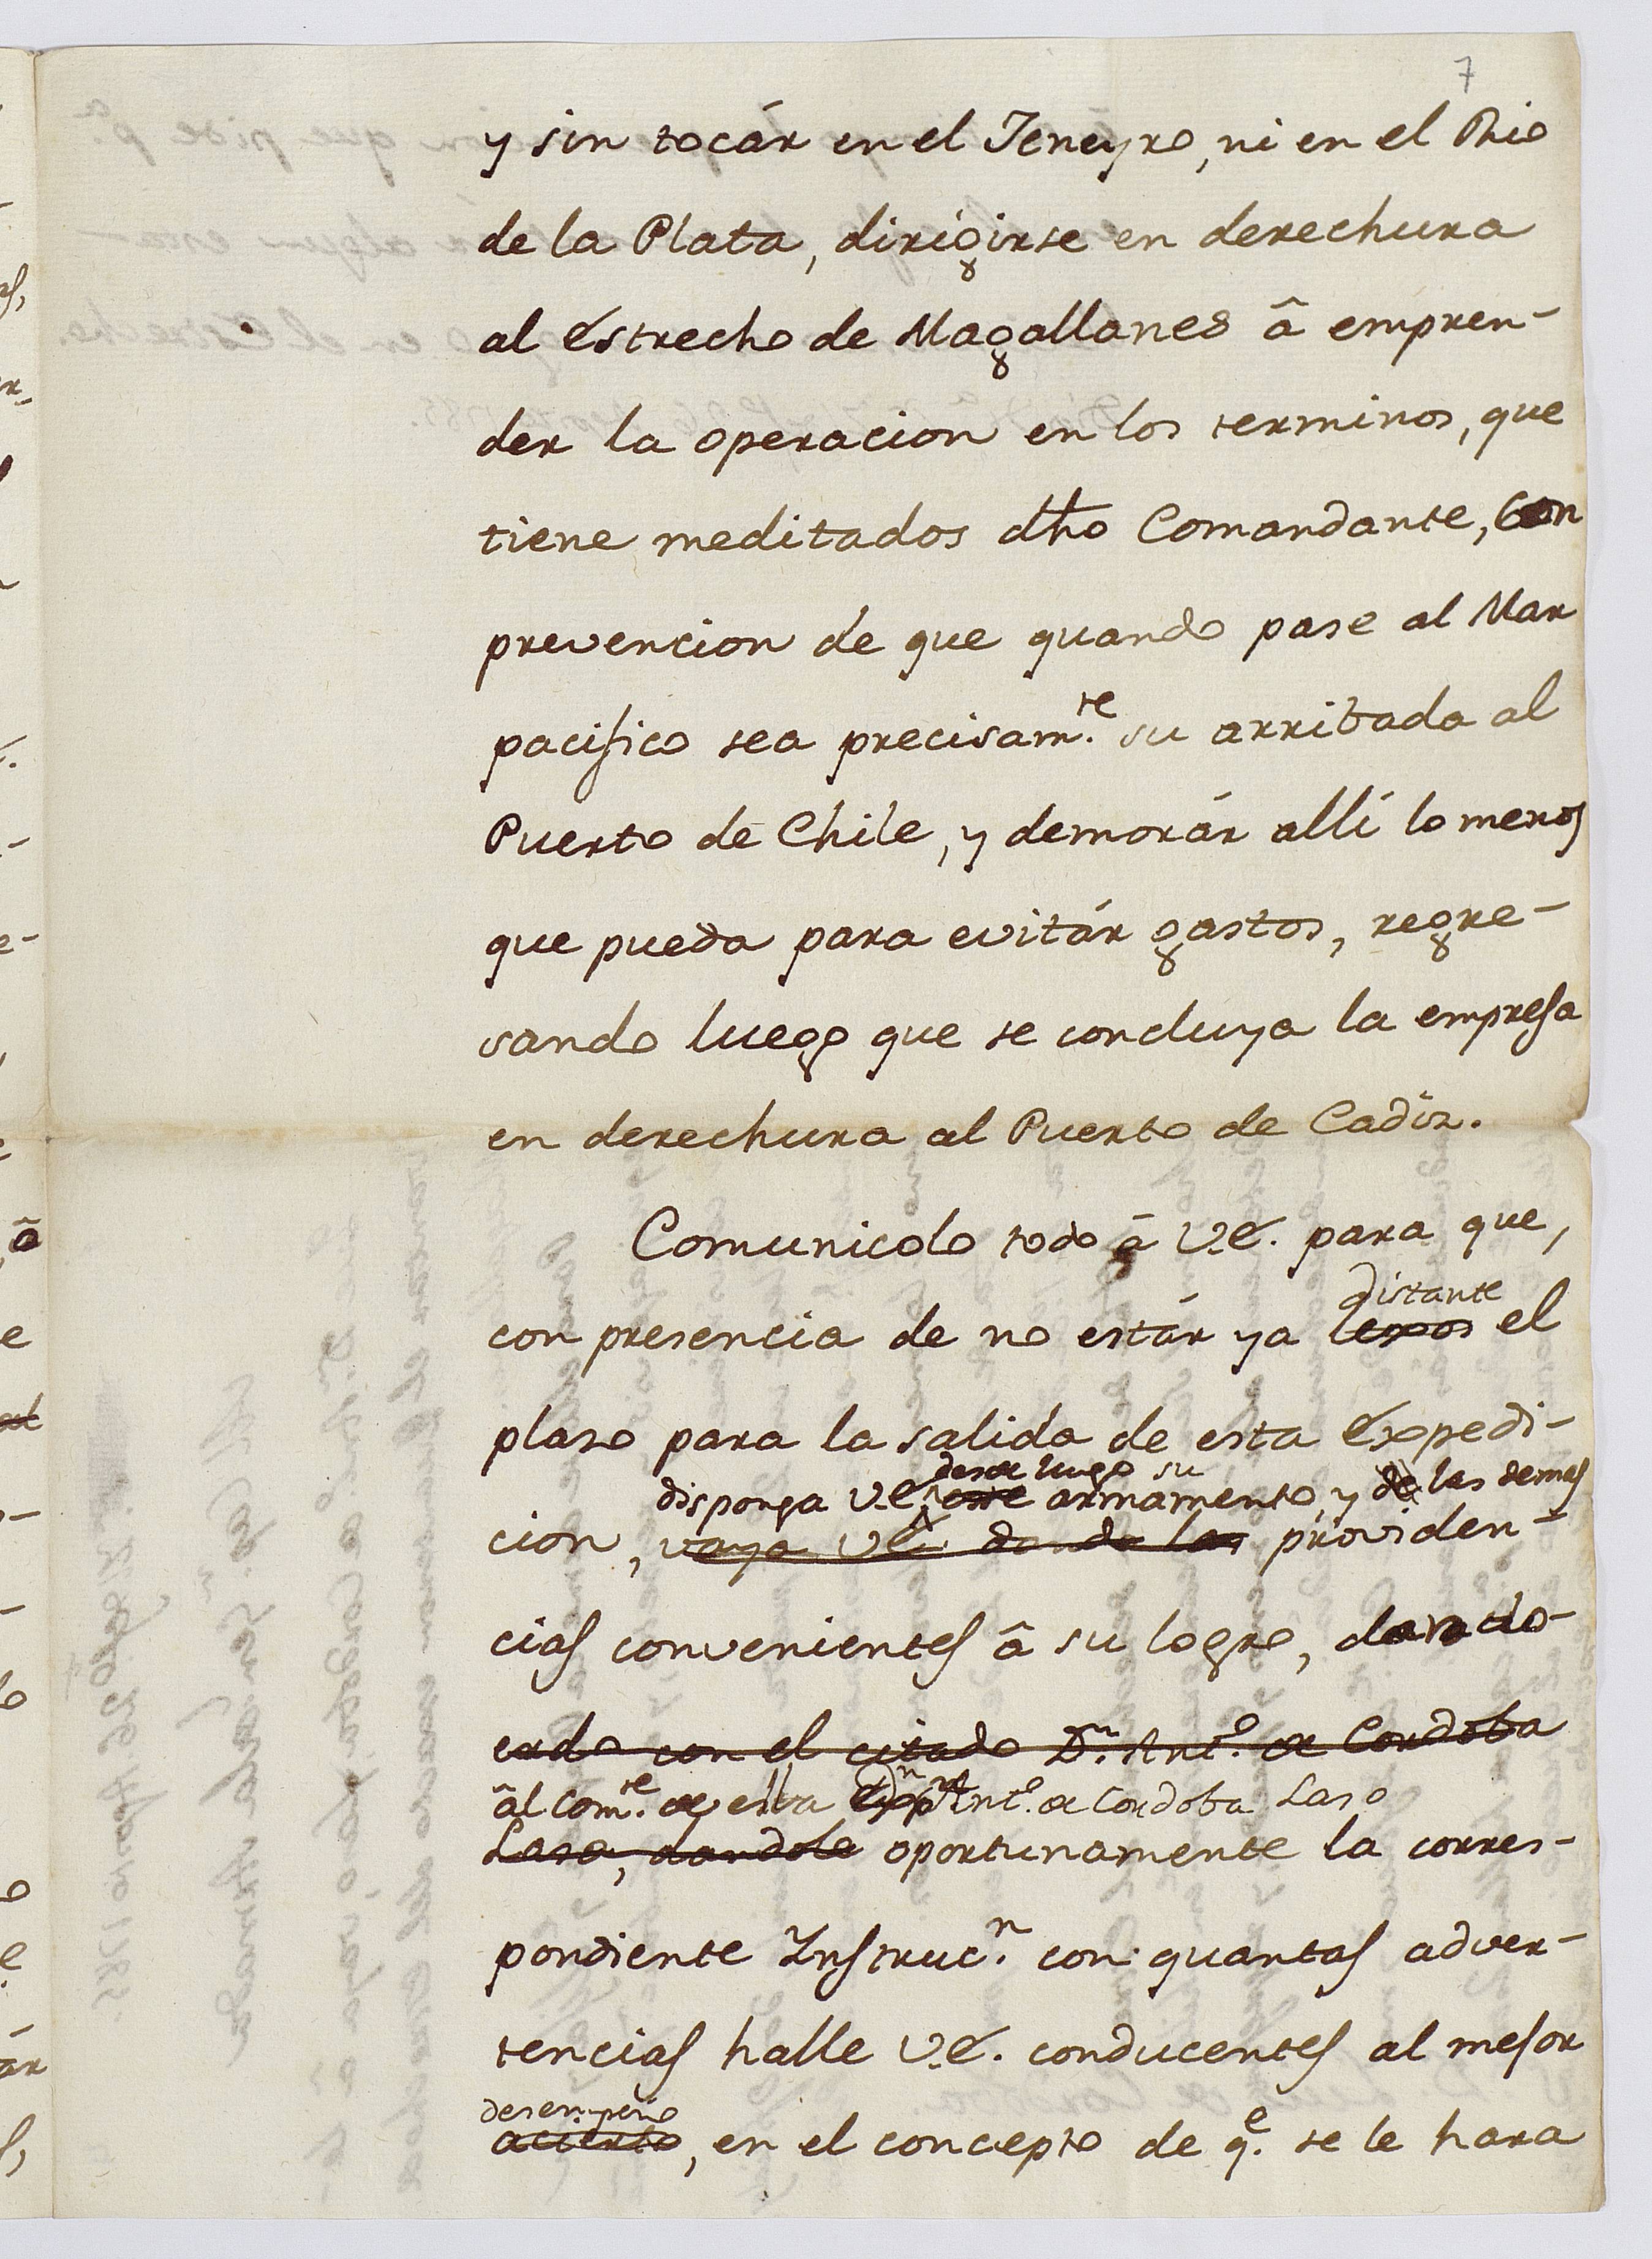 7
y sin tocár en el Jeneyro, ni en el Rio
de la Plata, dirigirse en derechura
al Estrecho de Magallanes â empren-
der la operacion en los terminos, que
tiene meditados dho Comandante, con
prevencion de que quando pase al Mar
pacifico sea precisam.te su arribada al
Puerto de Chile, y demorár allí lo menos
que pueda para evitár gastos, regre-
sando luego que se concluya la empresa
en derechura al Puerto de Cadiz.
Comunicolo todo â V.E. para que,
distante
con presencia de no estár ya lexos el
plaso para la salida de esta Expedi-
desde luego su
disponga V.E. este armamento, y de las demas
cion, vaya VE. dando las providen-
cias convenientes â su logro, dando
erdo con el citado D.n Ant.o de Cordoba
âl Com.te de ella D.n Ant.o de Cordoba Laso
Laso, dandole oportunamente la corres-
pondiente Instruc.n con quantas adver-
tencias halle V.E. conducentes al mejor
desempeño
acierto, en el concepto de q.e se le hara